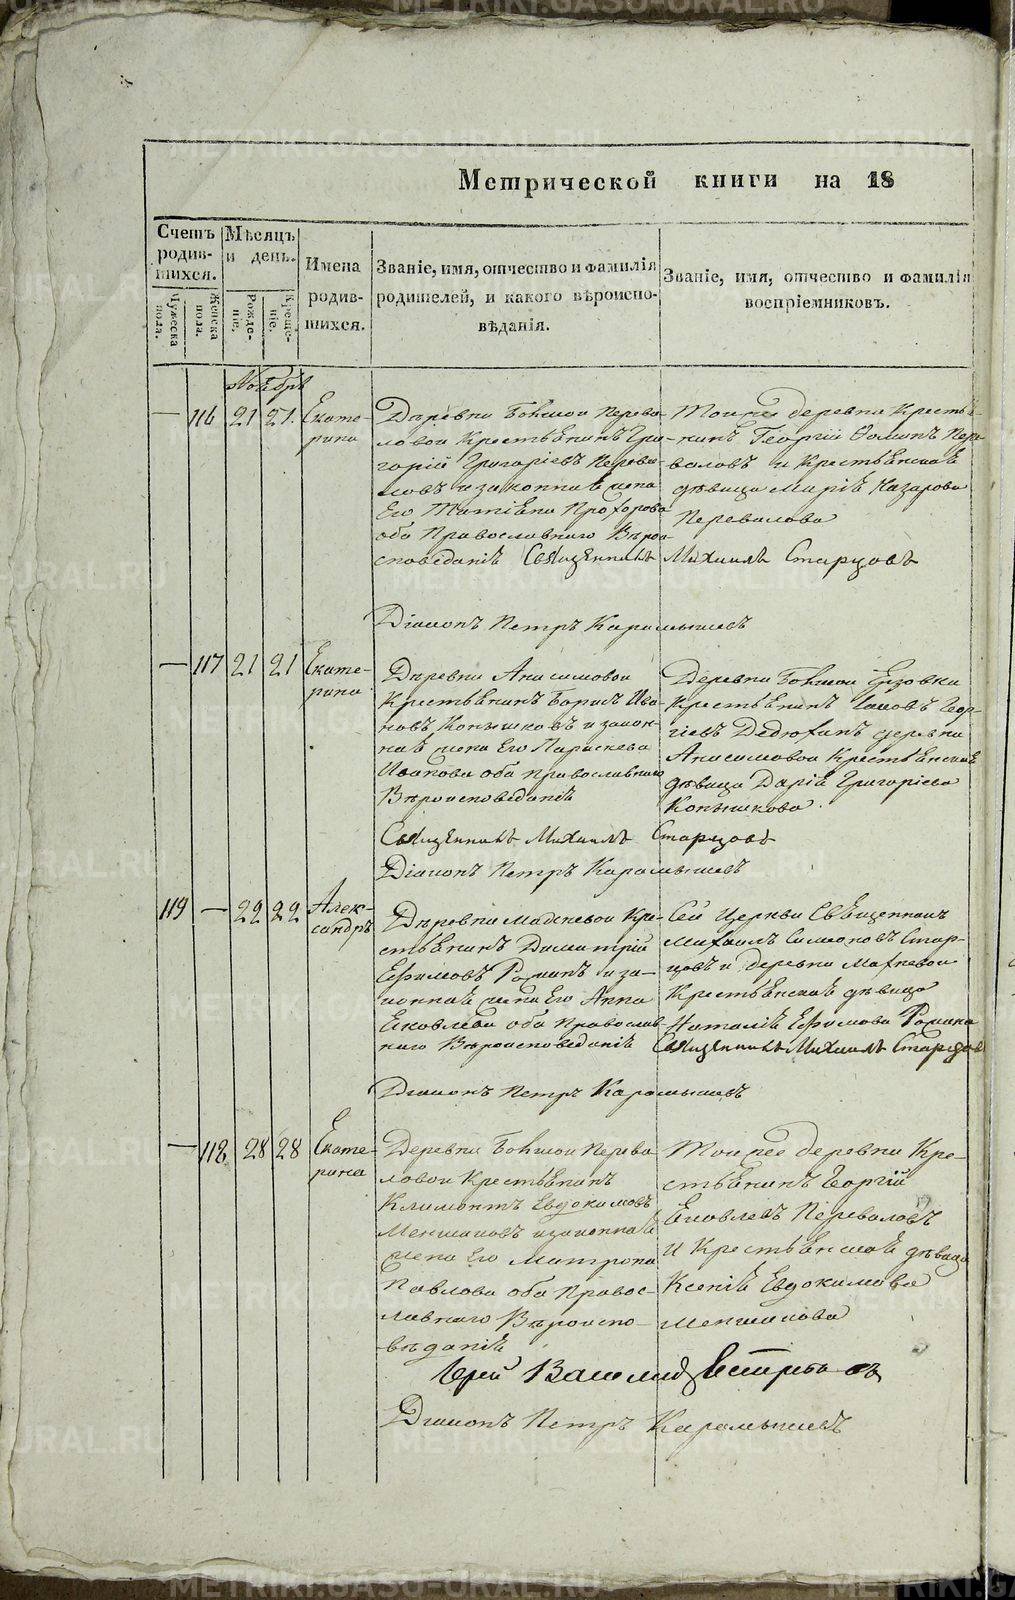 Метрической книги на 18
Счетъ родившихся.
Мужеска пола.
Женска пола.
Мѣсяцъ и день.
Рожденіе.
Крещеніе.
Имена родившихся.
Званіе, имя, отчество и фамилія родителей, и какого вѣроисповѣданія.
Званіе, имя, отчество и фамилія воспріемниковъ.
Ноябрь
— 116 21 21. Екате-
рина
Деревни Большой Перева-
ловой Крестьянинъ Гри-
горій Григорьевъ Перева-
ловъ и законная жена
Его Татіана Прохорова
оба Православнаго Вѣрои-
споведанія
Тоиже деревни Кресть-
нинъ Георгій Фоминъ Пере-
валовъ и Крестьянская
дѣвица Марія Назарова
Перевалова
Священникъ Михаилъ Старцовъ
Діаконъ Петръ Карамышевъ
— 117 21 21 Екате-
рина
Деревни Анисимовой
Крестьянинъ Борисъ Ива-
новъ Конышковъ и закон-
ная жена Его Параскева
Иванова оба православнаго
Вѣроисповеданія
Деревни Большой
Крестьянинъ Геор-
гіевъ деревни
Анисимовой Крестьянская
дѣвица Дарія Григоріева
Конышкова.
Священникъ Михаилъ Старцовъ
Діаконъ Петръ Карамышевъ
119 — 22 22 Алек-
сандръ
Деревни Кре-
стьянинъ Димитрій
Ефимовъ и за-
конная жена Его Анна
Яковлева оба Православ-
наго Вѣроисповеданія
Сей Церкви Священникъ
Михаилъ Симеоновъ Стар-
цовъ и деревни
Крестьянская дѣвица
Наталія Ефимова
Священникъ Михаилъ Старцовъ
Діаконъ Петръ Карамышевъ
— 118 28 28 Екате-
рина
Деревни Большой Перева-
ловой Крестьянинъ
Климонтъ Евдокимовъ
Меншиковъ и законная
жена Его Матрона
Павлова оба Правос-
лавнаго Вѣроиспо-
вѣданія
Тоиже деревни Кре-
стьянинъ Георгій
Яковлевъ Переваловъ
и Крестьянская дѣвица
Ксенія Евдокимова
Меншикова
Іерей Василій
Діаконъ Петръ Карамышевъ
METRIKI.GASO-URAL.RU